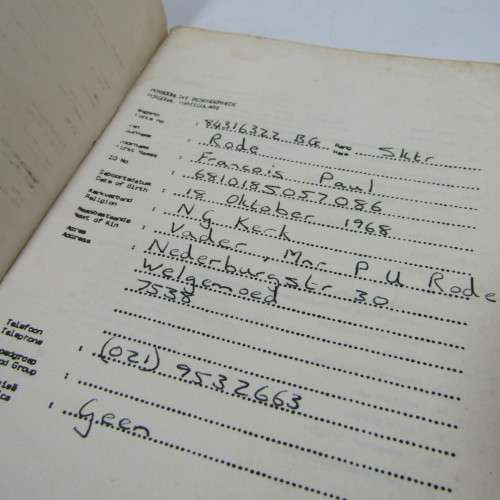 PERSOONLIKE BESONDERHEDE
PERSONAL PARTICULARS
Magsno
Force No : 84316322 BG Rang
Rank Sktr
Van
Surname : Rode
Voorname
First Names : Francois Paul
ID No : 6810185057086
Geboortedatum
Date of Birth : 18 Oktober 1968
Kerkverband
Religion : N G Kerk
Naasbestaande
Next of Kin : Vader, Mnr P U Rode
Adres
Address : Nederburgstr 30
Welgemoed
7538
Telefoon
Telephone : (021) 9532663
oedgroep
od Group :
:
Geen